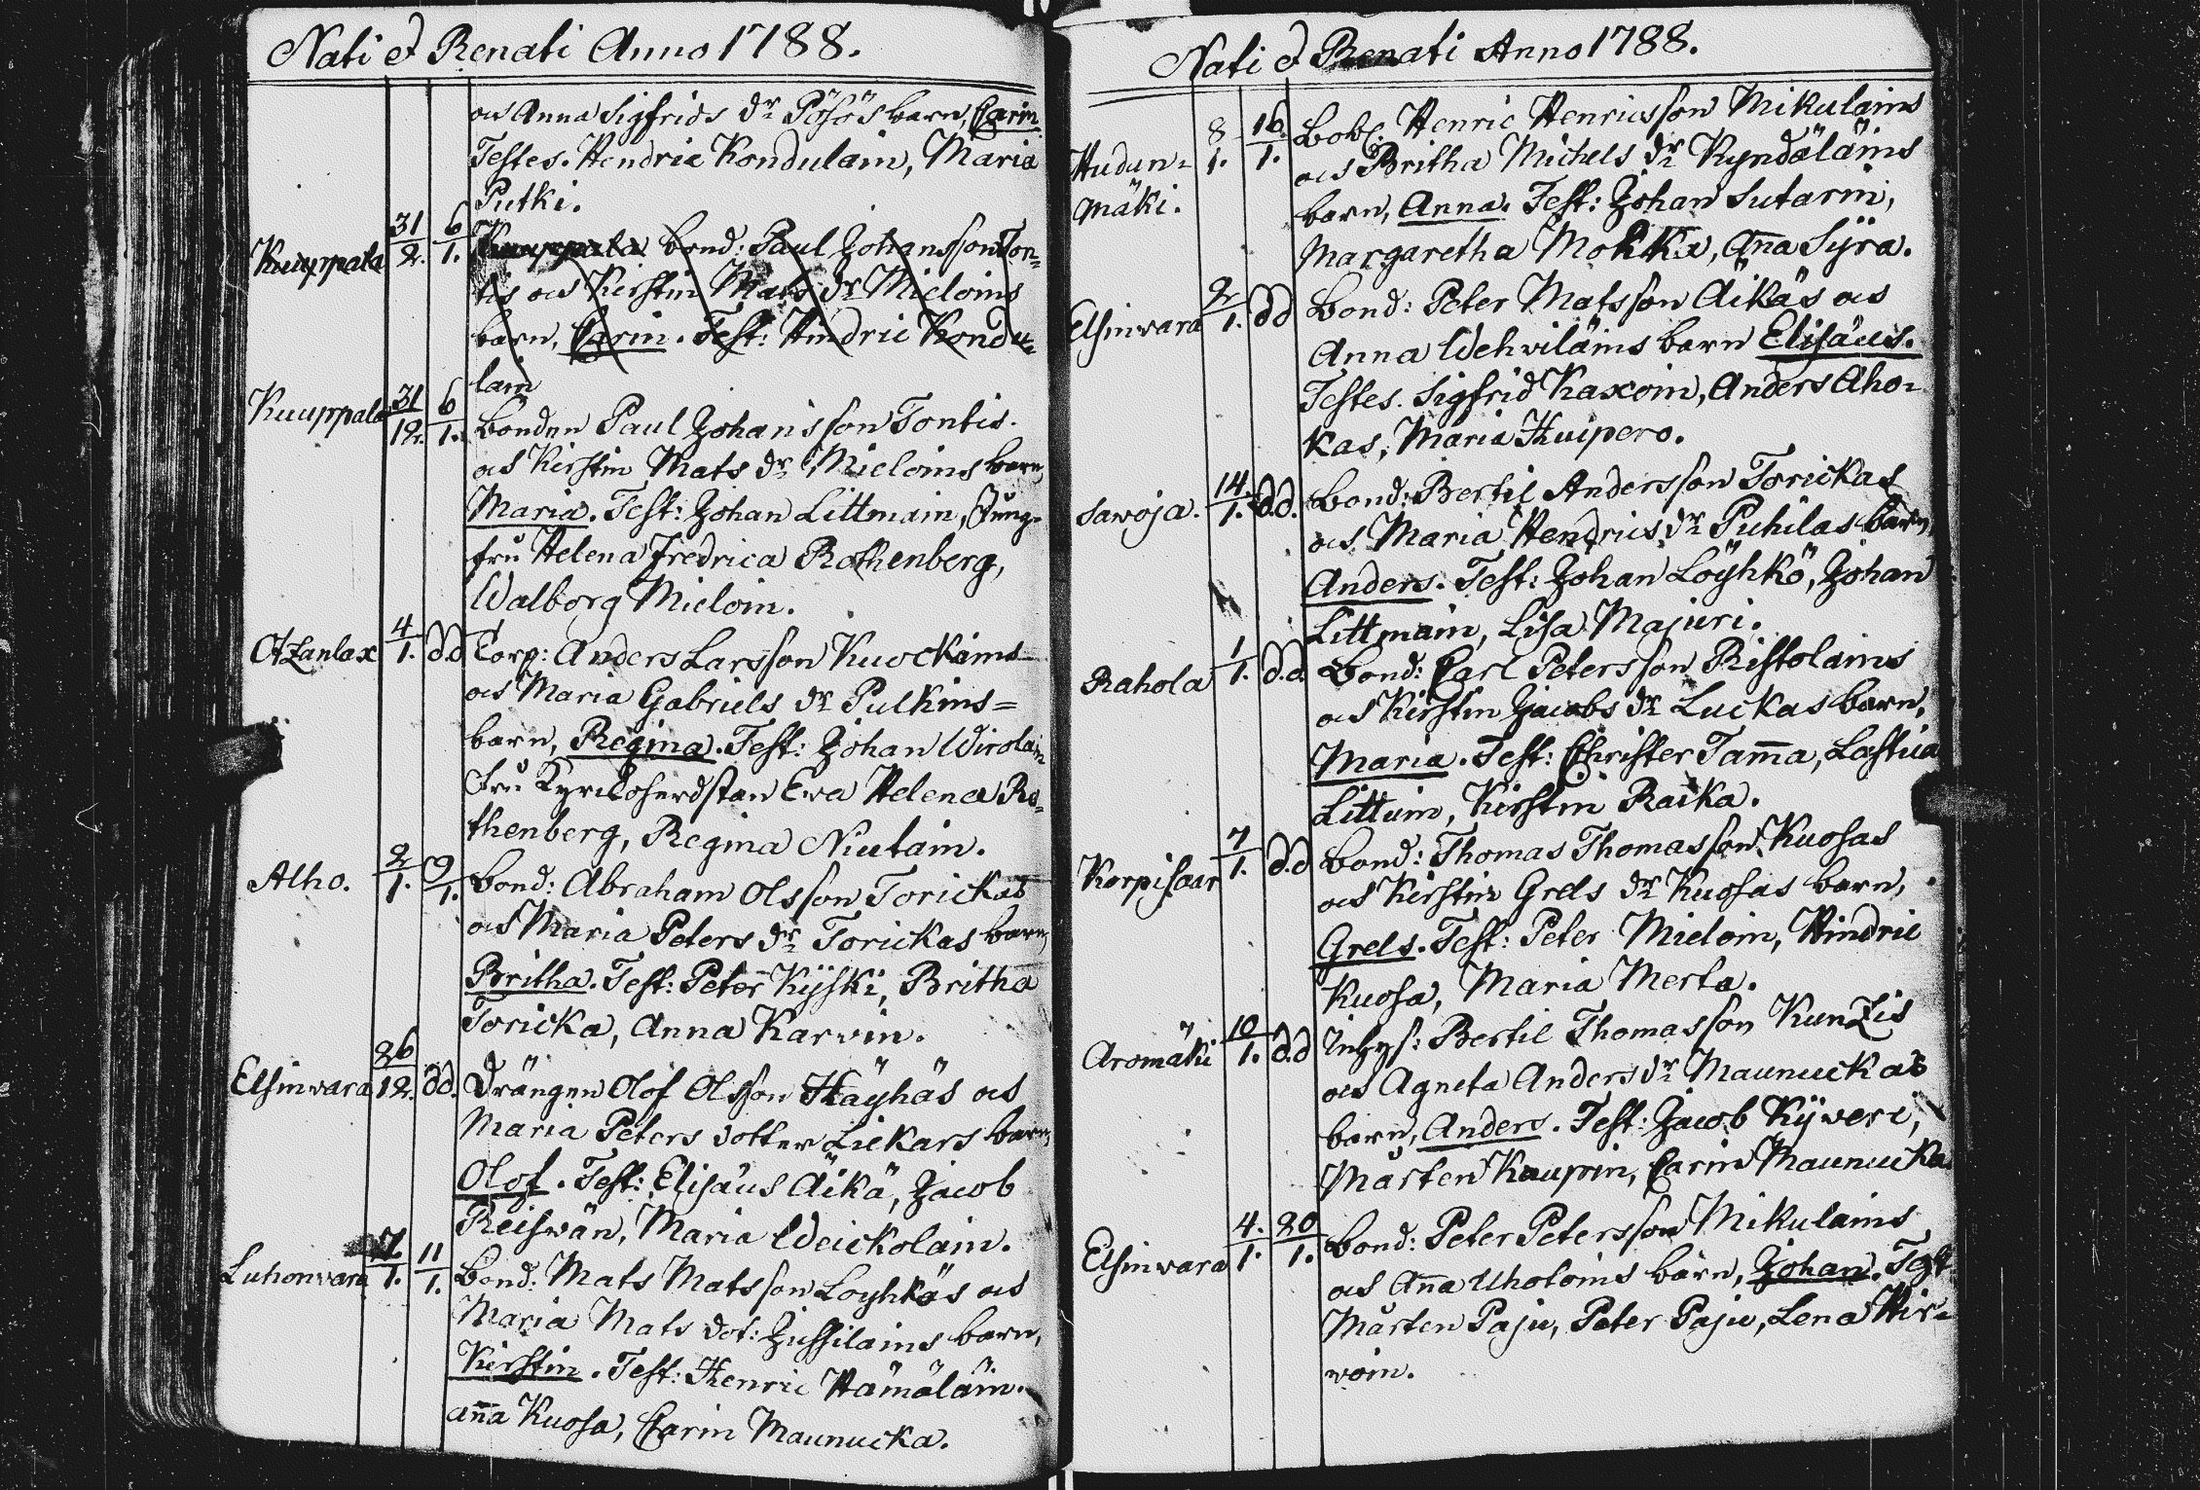 Nati et Renati Anno 1788.
och Anna Sigfrids dr Pösös barn, Carin
Testes. Hendric Kondulain, Maria
Putki.
Kuuppala 31/2. 6/1. Kuuppala bond: Paul Johansson Ton-
tis och Kirstin Mats dr Mieloins
barn, Carin. Test: Hindric Kondu-
lain
Kuuppala 31/12. 6/1. bonden Paul Johansson Tontis.
och Kirstin Mats dr Mieloins barn,
Maria. Test: Johan Littmain, Jung-
fru Helena Fredrica Rothenberg,
Walborg Mieloin.
Otzanlax 4/1. dd Torp: Anders Larsson Kuockains
och Maria Gabriels dr Pulkins=
barn, Regina. Test: Johan Wirolain
fru Kyrckoherdskan Eva Helena Ro-
thenberg, Regina Niutain.
Alho. 2/1. 9/1. bond: Abraham Olsson Torickas
och Maria Peters dr Torickas barn,
Britha. Test: Peter Kyski, Britha
Toricka, Anna Karvin.
Elsinvara 26/12. dd. Drängen Olof Olsson Häyhäs och
Maria Peters dotter Liekars barn,
Olof. Test: Elisäus Äikä, Jacob
Reiswän, Maria Weickolain.
Luhonvara 7/1. 11/1. bond: Mats Matsson Loyhkös och
Maria Mats dot: Jussilains barn,
Kirstin. Test: Henric Hämäläin.
Anna Kuosa, Carin Maunucka.
Nati et Renati Anno 1788.
Hudun- 8/1. 16/1. Henric Henricsson Mikulains
mäki. och Britha Michels dr Kyndäläins
barn, Anna. Test: Johan Sutarin,
Margaretha Mokka, Anna Syra.
Elsinvara 2/1. dd bond: Peter Matsson Äikäs och
Anna Wehviläins barn Elisäus.
Testes. Sigfrid Kaxoin, Anders Aho-
kas, Maria Huipero.
Savoja. 14/1. dd. bond: Bertil Andersson Torickas
och Maria Hendrics dr Puhilas barn,
Anders. Test: Johan Löyhkö, Johan
Littmain, Lisa Majuri.
Rahola 1/1. d.d. bond: Carl Petersson Ristolains
och Kirstin Jacobs dr Luckas barn,
Maria. Test: Christer Tamma,
Littuin, Kirstin Raika.
Korpisaar 7/1. d.d bond: Thomas Thomasson Kuosas
och Kirstin Grels dr Kuosas barn,
Grels. Test: Peter Mieloin, Hindric
Kuosa, Maria Merta.
Aromäki 10/1. d.d Inhys: Bertil Thomasson Kunzis
och Agneta Anders dr Maunuckas
barn, Anders. Test: Jacob Kyveri,
Mårten Kaupin, Carin Maunucka
Elsinvara 4./1. 20/1. bond: Peter Petersson Mikulains
och Anna Uhotoins barn, Johan. Test
Mårten Paju, Peter Paju, Lena Hir-
woin.